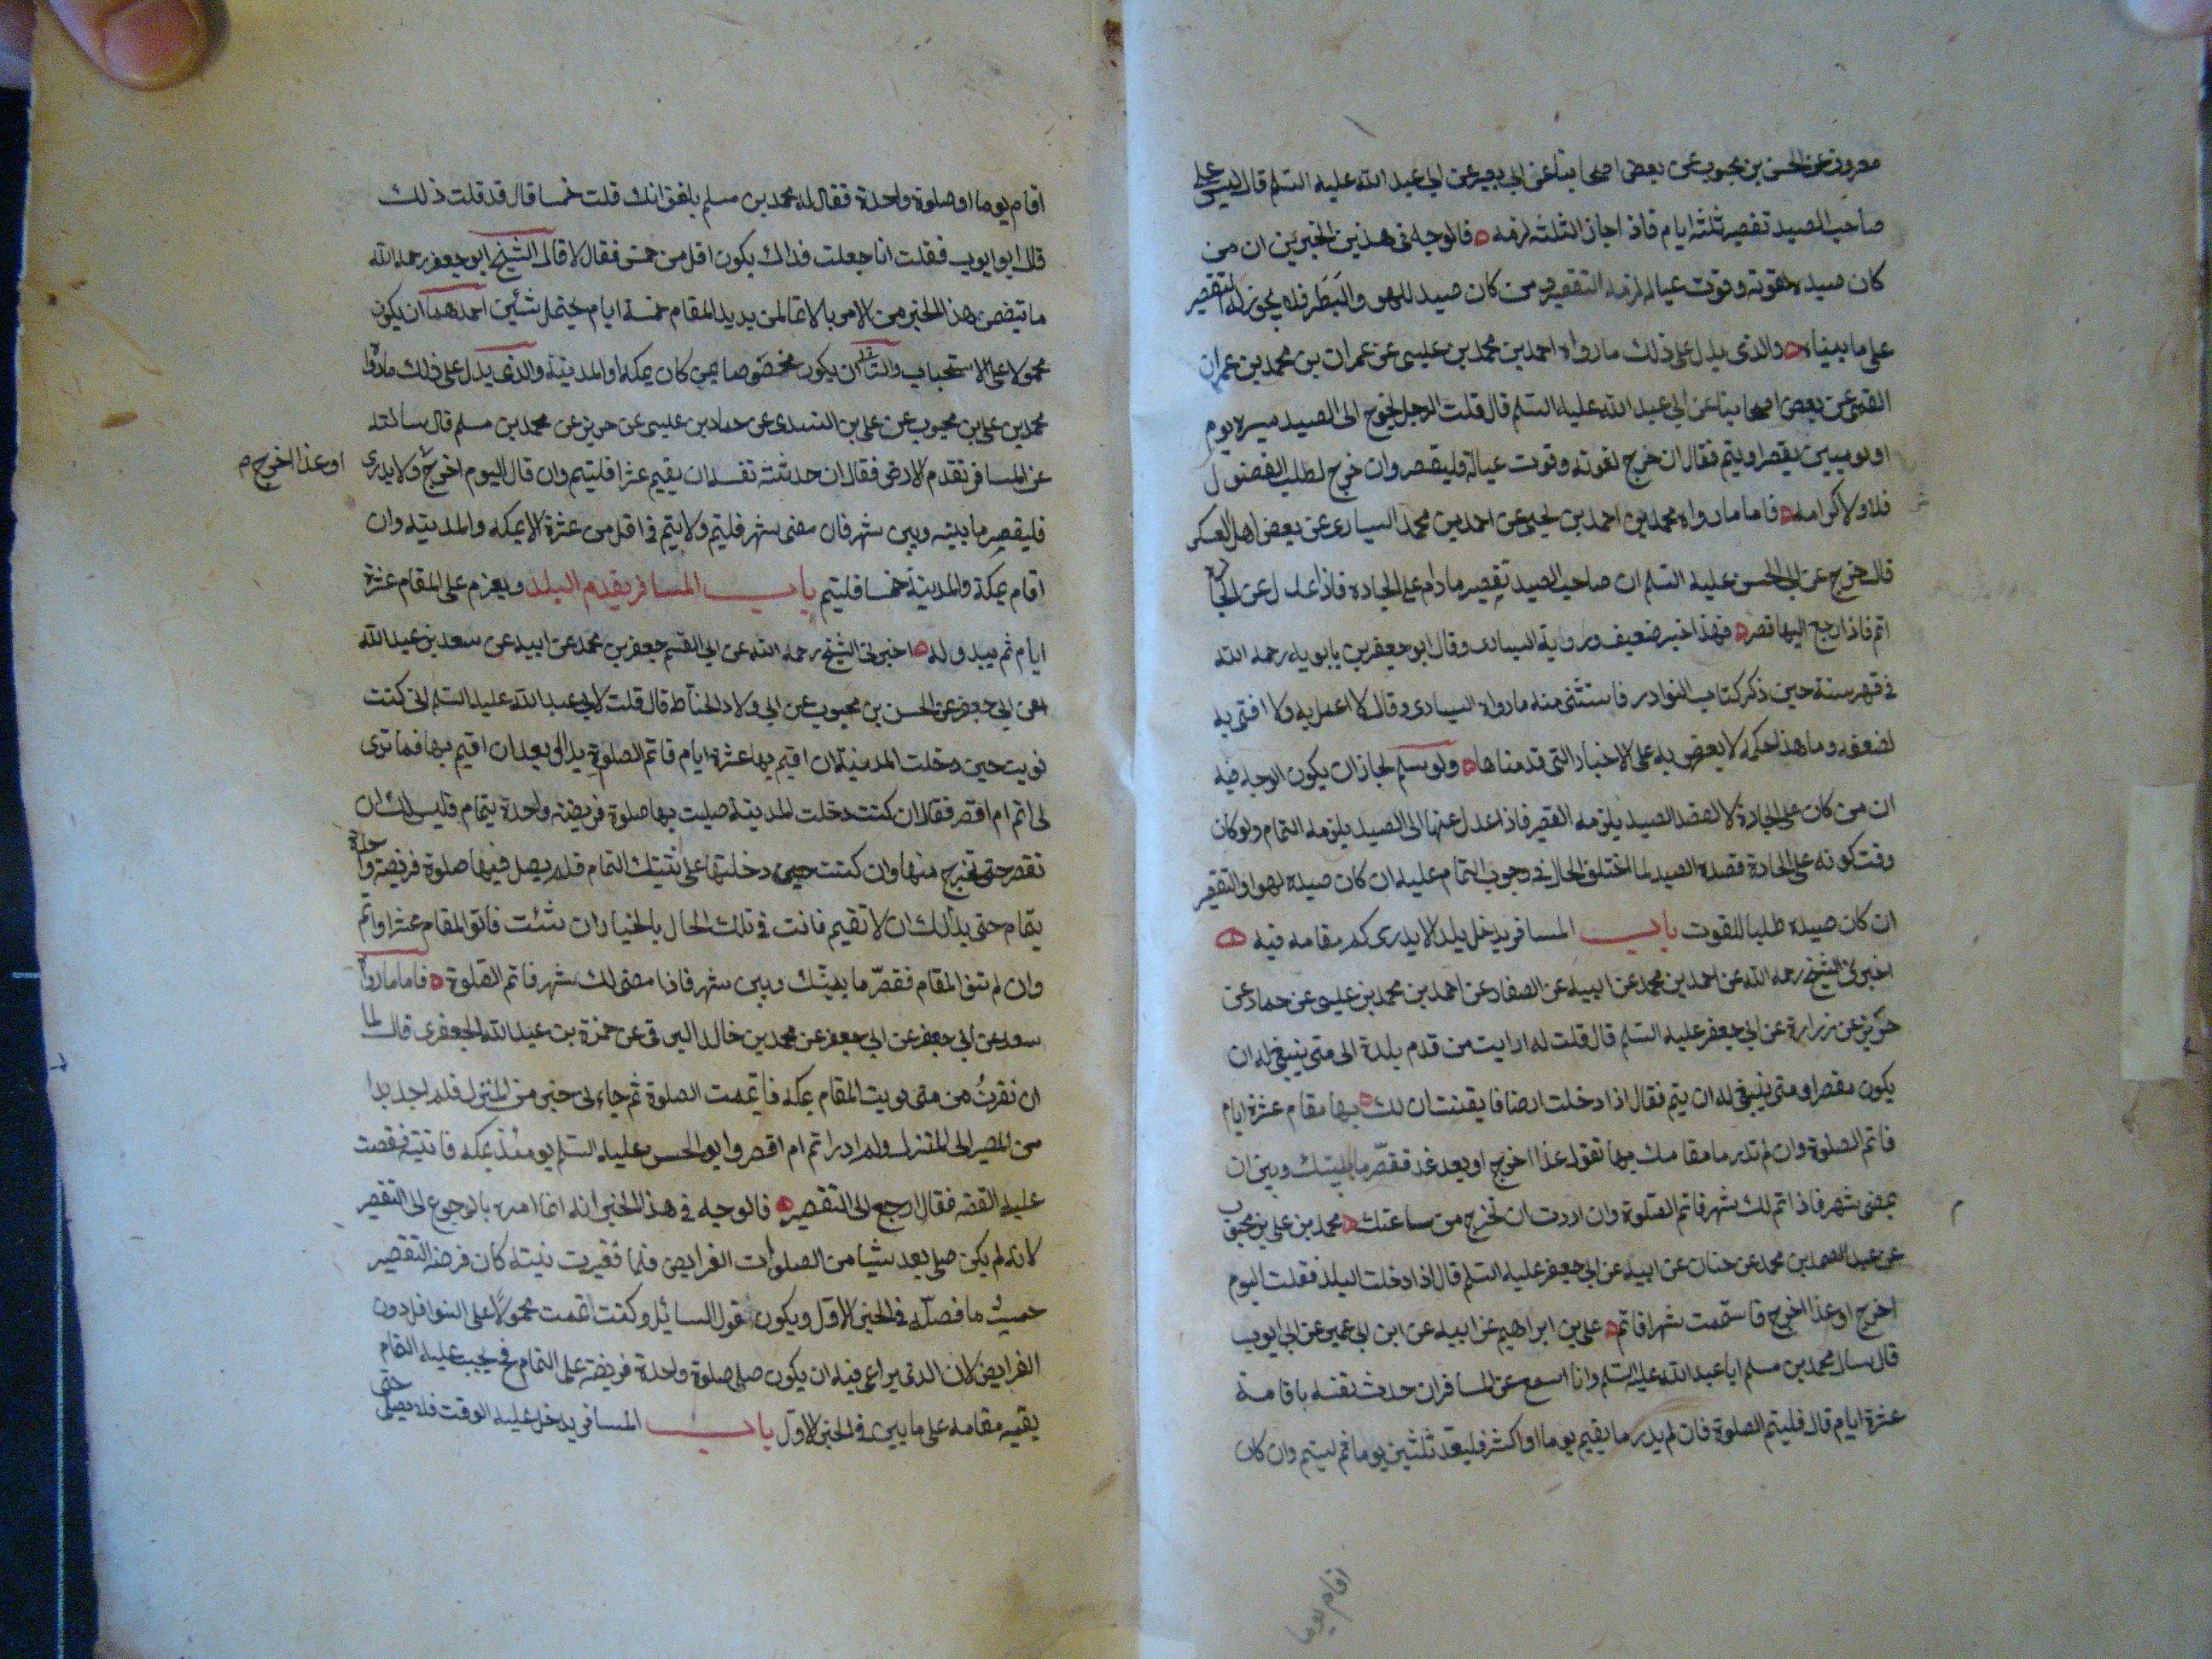 معروف عن الحسن بن محبوب عن بعض اصحابنا عن ابي بصير عن ابي عبد الله عليه السلم قال ليس على
صاحب الصيد تقصير ثلثة ايام فاذا جاز الثلثة لزمه فالوجه في هذين الخبرين ان من
كان صيده لقوته وقوت عياله لزمه التقصير ومن كان صيده للهو والبطر فلا يجوز له التقصير
على ما بيناه والذي يدل على ذلك ما رواه احمد بن محمد بن عيسى عن عمران بن محمد بن عمران
القمي عن بعض اصحابنا عن ابي عبد الله عليه السلم قال قلت الرجل يخرج الى الصيد مسيرة يوم
او يومين يقصر او يتم فقال ان خرج لقوته وقوت عياله فليقصر وان خرج لطلب الفضول
فلا ولا كرامه فاما ما رواه محمد بن احمد بن يحيى عن احمد بن محمد السياري عن بعض اهل العسكر
قال خرج عن ابي الحسن عليه السلم ان صاحب الصيد يقصر ما دام على الجاده فاذا عدل عن الجاده
اتم فاذا رجع اليها قصر فهذا خبر ضعيف وراوية السياري وقال ابو جعفر بن بابويه رحمه الله
في فهرسته حين ذكر كتاب النوادر فاستثنى منه ما رواه السياري وقال لا اعمل به ولا افتي به
لضعفه وما هذا حكمه لا يعترض به على الاخبار التي قدمناها ولو سلم لجاز ان يكون الوجه فيه
ان من كان على الجادة لا لقصد الصيد يلزمه القصر فاذا عدل عنها الى الصيد يلزمه التمام ولو كان
وقت كونه على الجادة قصده الصيد لما اختلف الحال في وجوب التمام عليه ان كان صيده لهوا والتقصير
ان كان صيده طلبا للقوت باب المسافر يدخل بلدا لا يدري كم مقامه فيه
اخبرني الشيخ رحمه الله عن احمد بن محمد عن ابيه عن الصفار عن احمد بن محمد بن عيسى عن حماد عن
حريز عن زرارة عن ابي جعفر عليه السلم قال قلت له ارايت من قدم بلدة الى متى ينبغي له ان
يكون مقصرا ومتى ينبغي له ان يتم فقال اذا دخلت ارضا فايقنت ان لك بها مقام عشرة ايام
فاتم الصلوة وان لم تدر ما مقامك بها تقول غدا اخرج او بعد غد فقصّر ما بينك وبين ان
يمضي شهر فاذا تم لك شهر فاتم الصلوة وان اردت ان تخرج من ساعتك محمد بن علي بن محبوب
عن عبد الصمد بن محمد عن حنان عن ابيه عن ابي جعفر عليه السلم قال اذا دخلت البلد فقلت اليوم
اخرج او غدا اخرج فاستتممت شهرا فاتم علي بن ابراهيم عن ابيه عن ابن ابي عمير عن ابي ايوب
قال سال محمد بن مسلم ابا عبد الله عليه السلم وانا اسمع عن المسافر ان حدث نفسه باقامة
عشرة ايام قال فليتم الصلوة فان لم يدر ما يقيم يوما او اكثر فليعد ثلثين يوما ثم ليتم وان كان
اقام يوما
اقام يوما او صلوة واحدة فقال له محمد بن مسلم بلغني انك قلت خمسا قال قد قلت ذلك
قال ابو ايوب فقلت انا جعلت فداك يكون اقل من خمس فقال لا قال الشيخ ابو جعفر رحمه الله
ما تضمن هذا الخبر من الامر بالاتمام لمن يريد المقام خمسة ايام يحتمل شئين احدهما ان يكون
محمولا على الاستحباب والثاني ان يكون مخصوصا بمن كان بمكة او المدينة والذي يدل على ذلك ما رواه
محمد بن علي بن محبوب عن علي بن السندي عن حماد بن عيسى عن حريز عن محمد بن مسلم قال سالته
عن المسافر تقدم الارض فقال ان حدثته نفسه ان يقيم عشرا فليتم وان قال اليوم اخرج ولا يدري
او غدا اخرج م
فليقصر ما بينه وبين شهر فان مضى شهر فليتم ولا يتم في اقل من عشرة الا بمكه والمدينه وان
اقام بمكة والمدينة خمسا فليتم باب المسافر يقدم البلد ويعزم على المقام عشرة
ايام ثم يبدو له اخبرني الشيخ رحمه الله عن ابي القسم جعفر بن محمد عن ابيه عن سعد بن عبد الله
عن ابي جعفر عن الحسن بن محبوب عن ابي ولاد الحناط قال قلت لابي عبد الله عليه السلم اني كنت
نويت حين دخلت المدينة ان اقيم بها عشرة ايام فاتم الصلوة ثم بدا لي بعد ان اقيم بها فما ترى
لي اتم ام اقصر فقال ان كنت دخلت المدينة صليت بها صلوة فريضة واحدة بتمام فليس لك ان
تقصر حتى تخرج منها وان كنت حين دخلتها على نيتك التمام فلم يصل فيها صلوة فريضة واحدة
بتمام حتى بدا لك ان لا تقيم فانت في تلك الحال بالخيار ان شئت فانو المقام عشرا واتم
وان لم تنو المقام فقصّر ما بينك وبين شهر فاذا مضى لك شهر فاتم الصلوة فاما ما رواه
سعد عن ابي جعفر عن ابي جعفر عن محمد بن خالد البرقي عن حمزة بن عبد الله الجعفري قال لما
ان نفرتُ من منى نويت المقام بمكه فاتممت الصلوة ثم جاءني خبر من المنزل فلم اجد بدا
من المصير الى المنزل ولم ادر اتم ام اقصر وابو الحسن عليه السلم يومئذ بمكه فاتيته فقصصت
عليه القصه فقال ارجع الى التقصير فالوجه في هذا الخبر انه انما امره بالرجوع الى التقصير
لانه لم يكن صلى بعد شيئا من الصلوات الفرايض فلما تغيرت نيته كان فرضه التقصير
حسب ما فصله في الخبر الاول ويكون قول السائل وكنت اتممت محمولا على النوافل دون
الفرايض لان الذي يراعى فيه ان يكون صلى صلوة واحدة فريضة على التمام فح يجب عليه التمام
يقيم مقامه على ما بين في الخبر الاول باب المسافر يدخل عليه الوقت فلا يصلي حتى